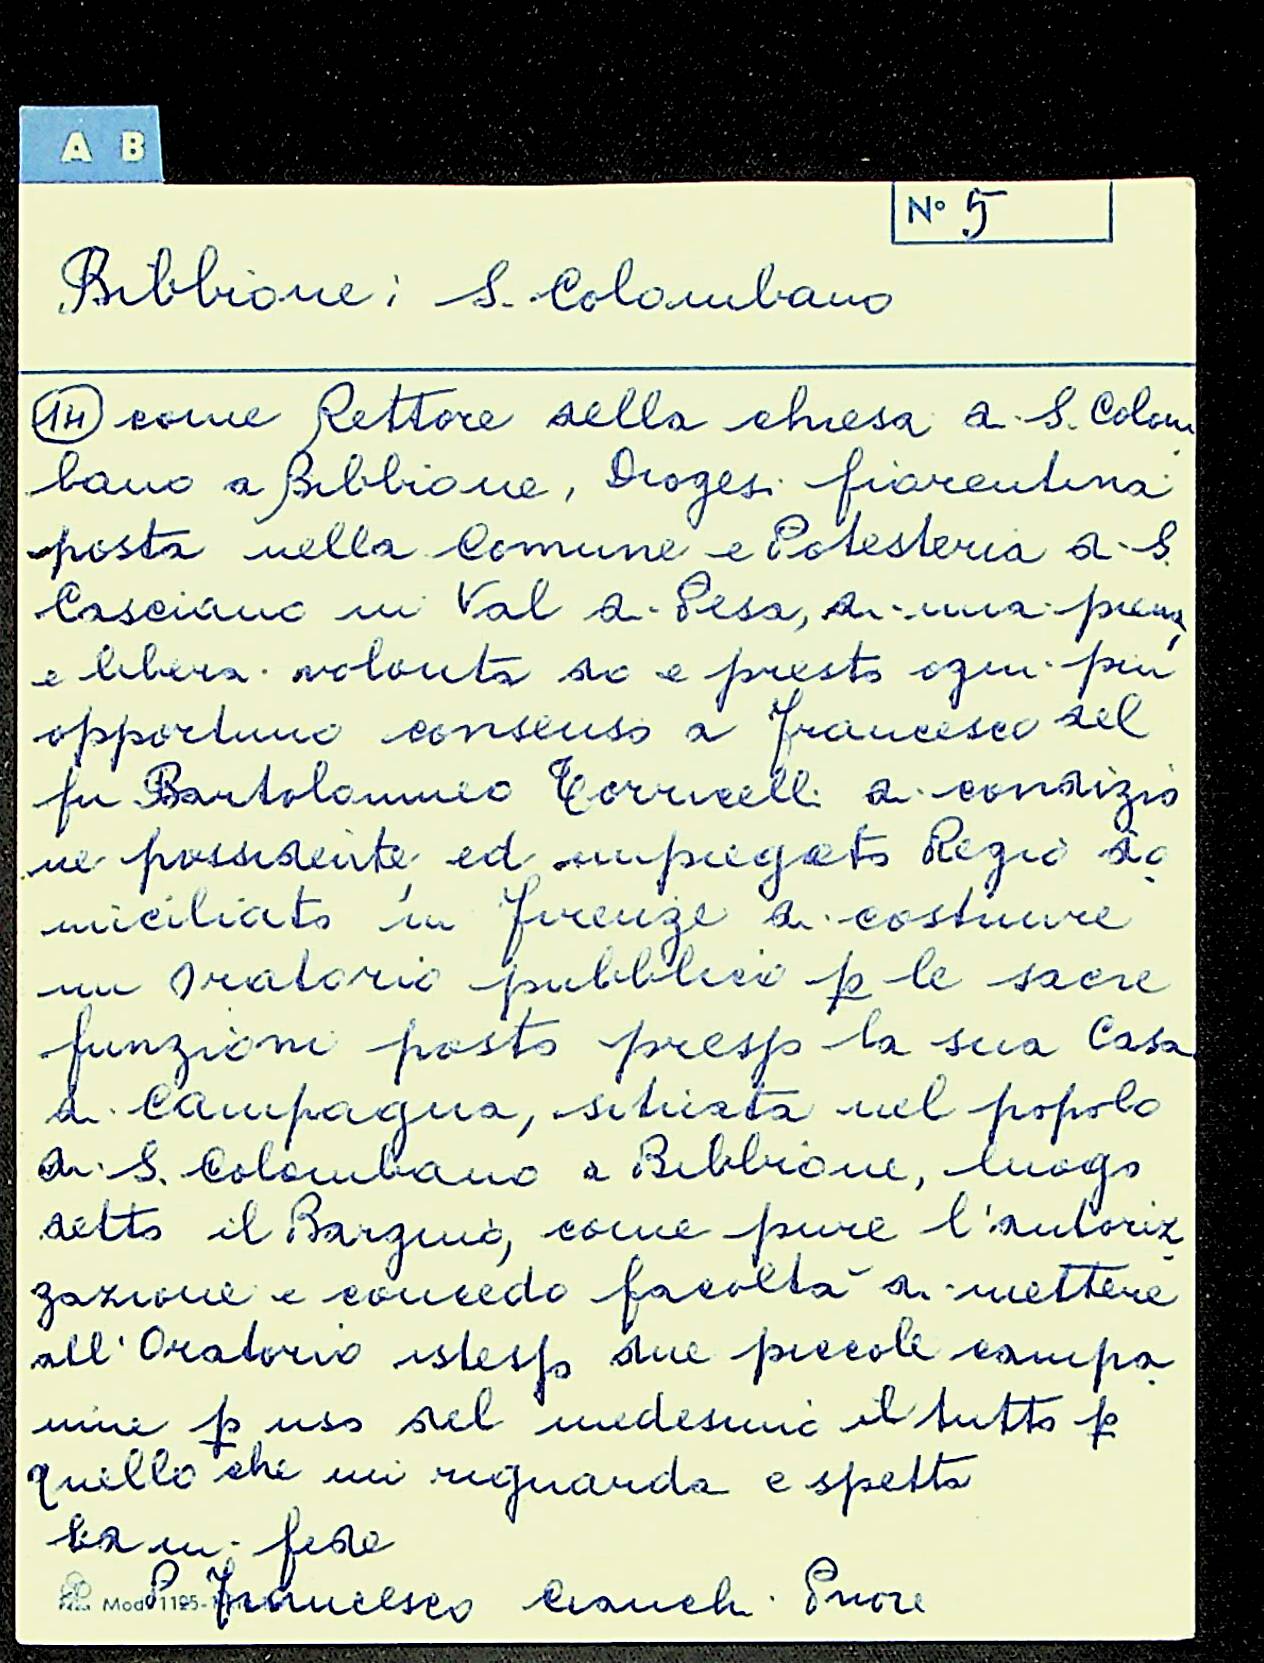 A B
N° 5
Bibbione: S. Colombano
14 come Rettore della chiesa di S. Colom
bano a Bibbione, Diogesi fiorentina
posta nella Comune e Potesteria di S.
Casciano in Val di Pesa, di mia piena
e libera volontà do e presto ogni più
opportuno consenso a Francesco del
fu Bartolommeo Torricelli di condizio
ne possidente, ed impiegato Regio do
miciliato in Firenze di costruire
un Oratorio pubblico p le sacre
funzioni posto presso la sua Casa
di Campagna, situata nel popolo
di S. Colombano a Bibbione, luogo
detto il Bargino, come pure l'autoriz
zazione e concedo facoltà di mettere
all'Oratorio istesso due piccole campa
nine p uso del medesimo il tutto p
quello che mi riguarda e spetta
ed in fede
P Francesco Cianchi Priore
Mod. 1195-